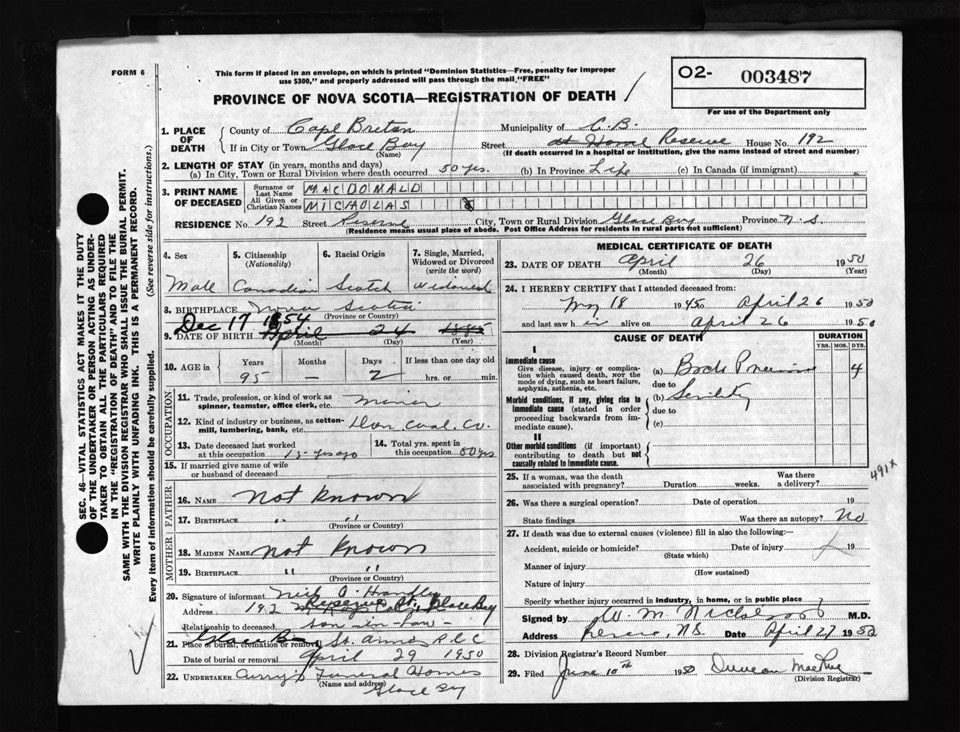 FORM 6
This form if placed in an envelope, on which is printed "Dominion Statistics—Free, penalty for improper
use $300," and properly addressed will pass through the mail "FREE"
O2- 003487
For use of the Department only
PROVINCE OF NOVA SCOTIA—REGISTRATION OF DEATH
1. PLACE OF DEATH County of Cape Breton Municipality of C.B.
If in City or Town Glace Bay (Name) Street at Home Reserve House No. 192
(If death occurred in a hospital or institution, give the name instead of street and number)
2. LENGTH OF STAY (in years, months and days)
(a) In City, Town or Rural Division where death occurred 50 yrs. (b) In Province Life (c) In Canada (if immigrant)
3. PRINT NAME OF DECEASED Surname or Last Name MACDONALD
All Given or Christian Names MICHOLAS
RESIDENCE No. 192 Street Reserve City, Town or Rural Division Glace Bay Province N.S.
(Residence means usual place of abode. Post Office Address for residents in rural parts not sufficient)
SEC. 46—VITAL STATISTICS ACT MAKES IT THE DUTY
OF THE UNDERTAKER OR PERSON ACTING AS UNDER-
TAKER TO OBTAIN ALL THE PARTICULARS REQUIRED
IN THE "REGISTRATION OF DEATH" AND TO FILE THE
SAME WITH THE DIVISION REGISTRAR WHO SHALL ISSUE THE BURIAL PERMIT.
WRITE PLAINLY WITH UNFADING INK. THIS IS A PERMANENT RECORD.
Every item of information should be carefully supplied. (See reverse side for instructions.)
4. Sex 5. Citizenship (Nationality) 6. Racial Origin 7. Single, Married, Widowed or Divorced (write the word)
Male Canadian Scotch Widowed
8. BIRTHPLACE Nova Scotia
(Province or Country)
Dec 17 1854
9. DATE OF BIRTH April 24 1885
(Month) (Day) (Year)
10. AGE in Years Months Days If less than one day old
95 — 2 hrs. or min.
OCCUPATION
11. Trade, profession or kind of work as spinner, teamster, office clerk, etc. miner
12. Kind of industry or business, as cotton-mill, lumbering, bank, etc. Dom. Coal. Co.
13. Date deceased last worked at this occupation 15 yrs ago 14. Total yrs. spent in this occupation 50 yrs
15. If married give name of wife or husband of deceased
FATHER
16. NAME not known
17. BIRTHPLACE " "
(Province or Country)
MOTHER
18. MAIDEN NAME not known
19. BIRTHPLACE " "
(Province or Country)
20. Signature of informant Nick O.
Address 192 Reserve St. Glace Bay
Relationship to deceased son-in-law-
21. Place of burial, cremation or removal Glace B St. Annes R C C
Date of burial or removal April 29 1950
22. UNDERTAKER Curry's Funeral Homes
(Name and address) Glace Bay
MEDICAL CERTIFICATE OF DEATH
23. DATE OF DEATH April 26 1950
(Month) (Day) (Year)
24. I HEREBY CERTIFY that I attended deceased from:
May 18 1945 to April 26 1950
and last saw h im alive on April 26 1950
CAUSE OF DEATH DURATION
YRS. MOS. DYS.
I
Immediate cause
Give disease, injury or complica-
tion which caused death, NOT the
mode of dying, such as heart failure,
asphyxia, asthenia, etc.
(a) Broch Pneumonia 4
due to
Morbid conditions, if any, giving rise to
immediate cause (stated in order
proceeding backwards from im-
mediate cause).
(b) Senility
due to
(c)
II
Other morbid conditions (if important)
contributing to death but not
causally related to immediate cause.
491x
25. If a woman, was the death associated with pregnancy? Duration weeks. Was there a delivery?
26. Was there a surgical operation? Date of operation 19
State findings Was there an autopsy? No
27. If death was due to external causes (violence) fill in also the following:—
Accident, suicide or homicide? Date of injury 19
(State which)
Manner of injury
(How sustained)
Nature of injury
Specify whether injury occurred in industry, in home, or in public place
Signed by W. M. Nicholson M.D.
Address Reserve, N.S. Date April 27 1950
28. Division Registrar's Record Number
29. Filed June 10th 1950 Duncan MacRae
(Division Registrar)